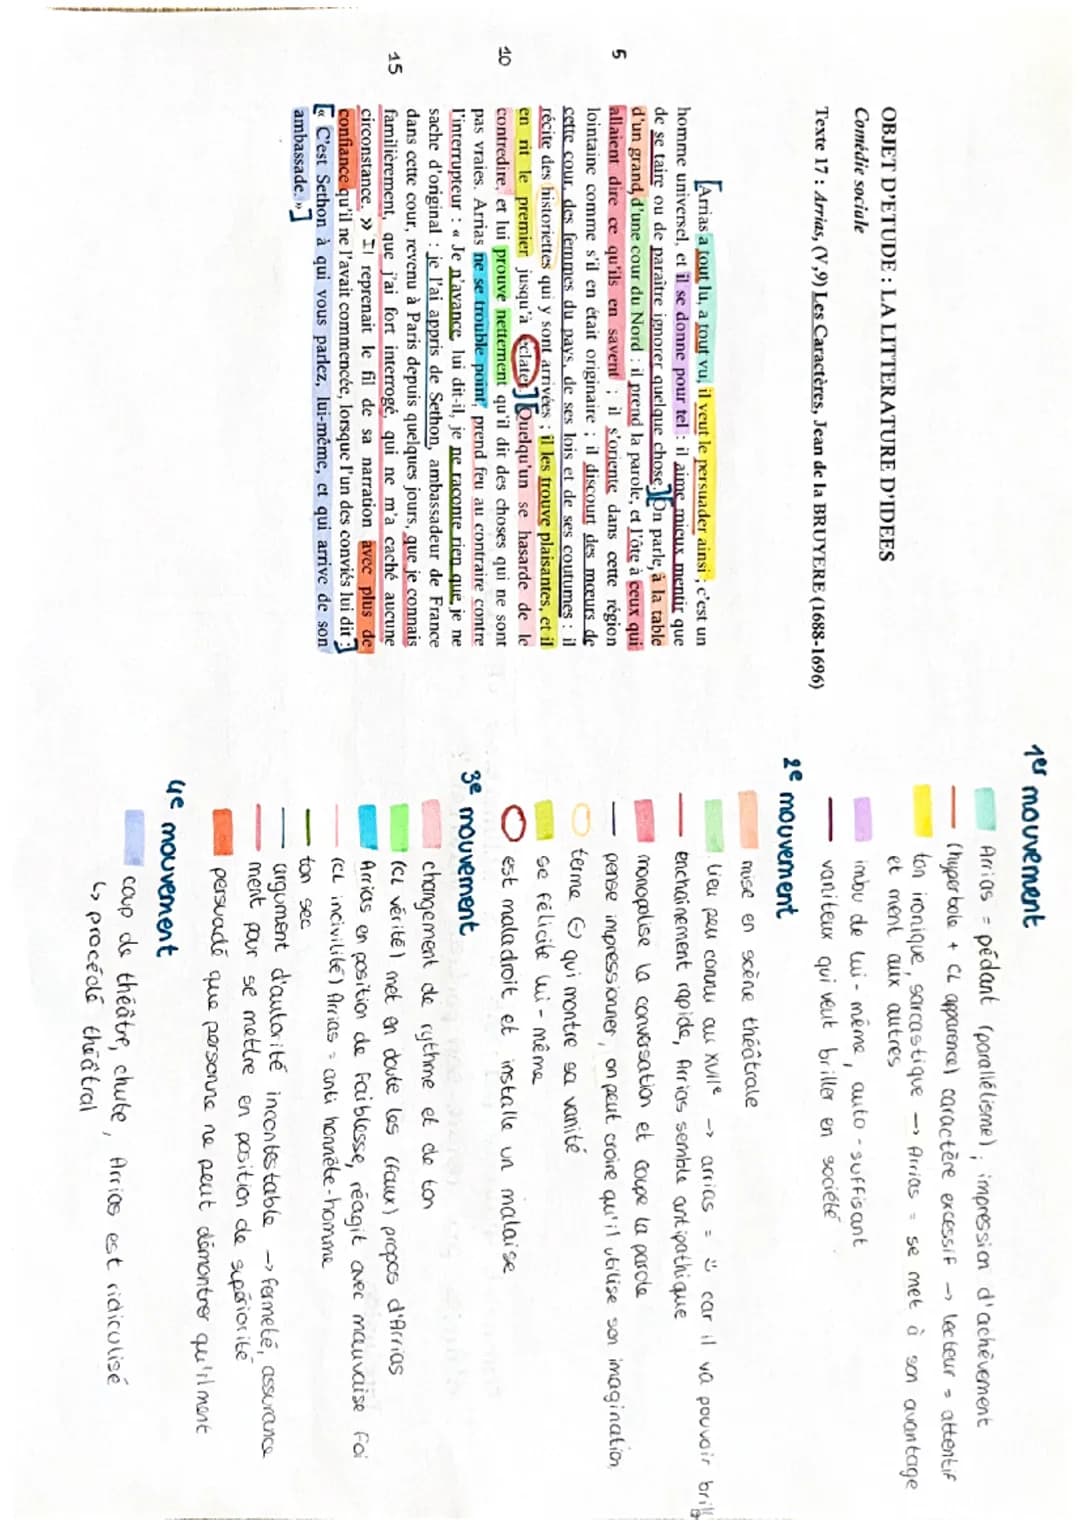 OBJET D'ETUDE : LA LITTERATURE D'IDEES
Comédie sociale
Texte 17 : Arrias, (V,9) Les Caractères, Jean de la BRUYERE (1688-1696)
[Arrias a tout lu, a tout vu, il veut le persuader ainsi ; c'est un
homme universel, et il se donne pour tel : il aime mieux mentir que
de se taire ou de paraître ignorer quelque chose.] [On parle, à la table
d'un grand, d'une cour du Nord : il prend la parole, et l'ôte à ceux qui
5 allaient dire ce qu'ils en savent ; il s'oriente dans cette région
lointaine comme s'il en était originaire ; il discourt des mœurs de
cette cour, des femmes du pays, de ses lois et de ses coutumes : il
récite des historiettes qui y sont arrivées ; il les trouve plaisantes, et il
en rit le premier jusqu'à éclater.] [Quelqu'un se hasarde de le
10 contredire, et lui prouve nettement qu'il dit des choses qui ne sont
pas vraies. Arrias ne se trouble point, prend feu au contraire contre
l'interrupteur : « Je n'avance, lui dit-il, je ne raconte rien que je ne
sache d'original : je l'ai appris de Sethon, ambassadeur de France
dans cette cour, revenu à Paris depuis quelques jours, que je connais
15 familièrement, que j'ai fort interrogé, qui ne m'a caché aucune
circonstance. » Il reprenait le fil de sa narration avec plus de
confiance qu'il ne l'avait commencée, lorsque l'un des conviés lui dit :]
[« C'est Sethon à qui vous parlez, lui-même, et qui arrive de son
ambassade. »]
1er mouvement
Arrias = pédant (parallélisme) ; impression d'achèvement
(hyperbole + CL apparence) caractère excessif → lecteur = attentif
ton ironique, sarcastique → Arrias = se met à son avantage
et ment aux autres
imbu de lui-même, auto-suffisant
vaniteux qui veut briller en société
2e mouvement
mise en scène théâtrale
lieu peu connu au XVIIe → arrias = ☺ car il va pouvoir brill
enchaînement rapide, Arrias semble antipathique
monopolise la conversation et coupe la parole
pense impressionner, on peut croire qu'il utilise son imagination
terme ⊖ qui montre sa vanité
se félicite lui-même
est maladroit et installe un malaise
3e mouvement
changement de rythme et de ton
(CL vérité) met en doute les (faux) propos d'Arrias
Arrias en position de faiblesse, réagit avec mauvaise foi
(CL incivilité) Arrias = anti honnête-homme
ton sec
argument d'autorité incontestable → fermeté, assurance
ment pour se mettre en position de supériorité
persuadé que personne ne peut démontrer qu'il ment
4e mouvement
coup de théâtre, chute, Arrias est ridiculisé
↳ procédé théâtral